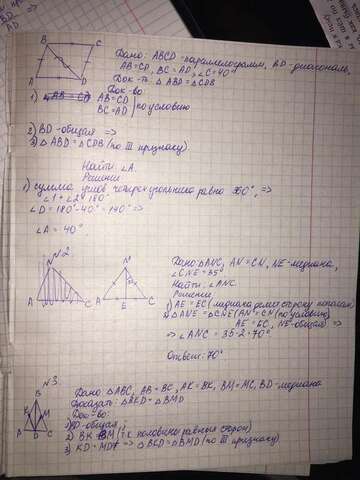 B C
A D
Дано: ABCD - параллелограмм, BD - диагональ,
AB=CD, BC=AD, ∠C=40°
Док-ть: △ABD=△CDB
Док-во:
1) AB=CD
BC=AD | по условию
2) BD-общая =>
3) △ABD=△CDB (по III признаку)
Найти: ∠A.
Решение
1) сумма углов четырехугольника равно 360°, =>
∠1+∠2=180°
∠D=180°-40°=140° =>
∠A=40°.
№2
N M
A C A E C
Дано: △ANC, AN=CN, NE-медиана,
∠CNE=35°
Найти: ∠ANC.
Решение
1) AE=EC (медиана делит сторону пополам)
2) △ANE=△CNE (AN=CN (по условию)
AE=EC, NE-общая) =>
=> ∠ANC=35·2=70°
Ответ: 70°
№3.
B
K M
A D C
Дано: △ABC, AB=BC, AK=BK, BM=MC, BD-медиана
Доказать: △BKD=△BMD
Док-во:
1) BD-общая;
2) BK=BM (т.к половины равных сторон)
3) KD=MD => △BKD=△BMD (по III признаку)